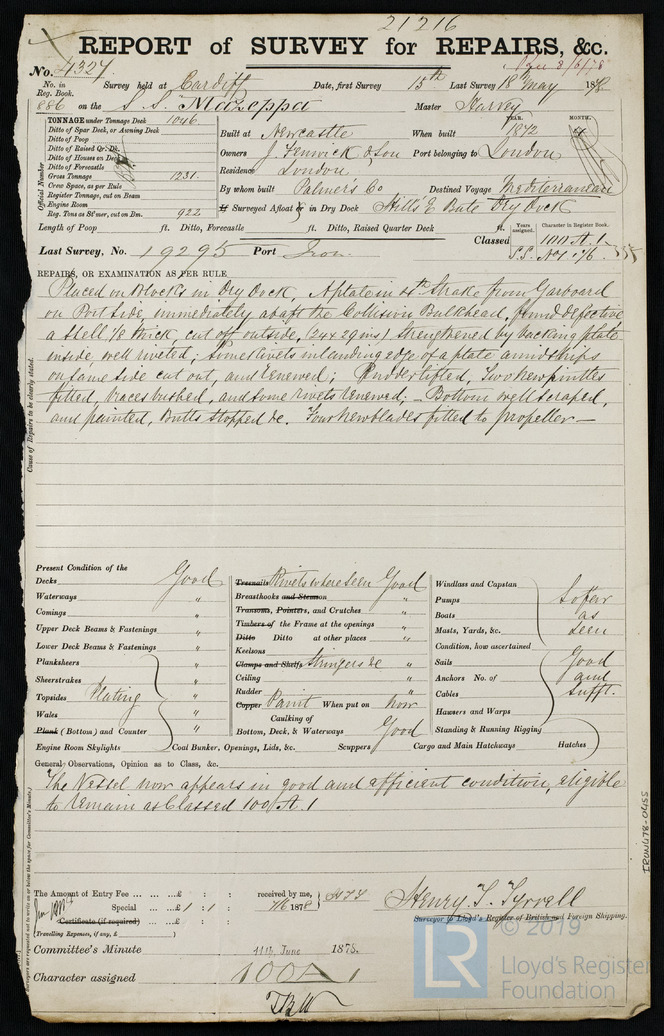 21216
REPORT of SURVEY for REPAIRS, &c.
No. 4327
Survey held at Cardiff Date, first Survey 15th Last Survey 18 May 1878
No. in Reg. Book.
886 on the S.S. Mazeppa Master Harvey
TONNAGE under Tonnage Deck 1046
Ditto of Spar Deck, or Awning Deck
Ditto of Poop
Ditto of Raised Qr. Dk.
Ditto of Houses on Deck
Ditto of Forecastle
Gross Tonnage 1231.
Crew Space, as per Rule
Register Tonnage, cut on Beam
Engine Room
Reg. Tons as St'mer, cut on Bm. 922
Official Number
Built at Newcastle When built YEAR. 1872 MONTH. 4
Owners J. Fenwick & Son Port belonging to London
Residence London
By whom built Palmer's Co Destined Voyage Mediterranean
If Surveyed Afloat or in Dry Dock Hills E. Bute Dry Dock
Length of Poop ft. Ditto, Forecastle ft. Ditto, Raised Quarter Deck ft.
Years assigned. Character in Register Book.
Last Survey, No. 19295 Port Iron Classed 100 A. 1
S.S. No 1 76
REPAIRS, OR EXAMINATION AS PER RULE
Placed on Blocks in Dry Dock, A plate in 4th Strake from Garboard
on Port Side, immediately abaft the Collision Bulkhead, found defective
a shell 1/8 thick, cut off outside, (24 x 29 ins) strengthened by backing plate
inside well riveted; Some rivets in landing edge of a plate amidships
on same side cut out, and renewed; Rudder lifted, Two new pintles
fitted, braces bushed, and some rivets renewed; — Bottom well scraped,
and painted, Butts stopped &c. Four new blades fitted to propeller —
Cause of Repairs to be clearly stated.
Present Condition of the
Decks Good
Waterways "
Comings "
Upper Deck Beams & Fastenings "
Lower Deck Beams & Fastenings "
Planksheers "
Sheerstrakes "
Topsides Plating "
Wales "
Plank (Bottom) and Counter "
Engine Room Skylights
Treenails Rivets where seen Good
Breasthooks and Stemson "
Transoms, Pointers, and Crutches "
Timbers of the Frame at the openings "
Ditto Ditto at other places "
Keelsons "
Clamps and Shelfs Stringers &c "
Ceiling "
Rudder "
Copper Paint When put on now
Caulking of
Bottom, Deck, & Waterways Good
Coal Bunker, Openings, Lids, &c. Scuppers Cargo and Main Hatchways Hatches
Windlass and Capstan
Pumps So far
Boats as
Masts, Yards, &c. seen
Condition, how ascertained
Sails Good
Anchors No. of and
Cables sufft.
Hawsers and Warps
Standing & Running Rigging
General Observations, Opinion as to Class, &c.
The Vessel now appears in good and efficient condition, eligible
to remain as Classed 100 A. 1
The Amount of Entry Fee ... £ : : received by me,
Special ... £ 1 : 1 : 1878
Certificate (if required)
(Travelling Expenses, if any, £ )
Henry T. Tyrrell
Surveyor to Lloyd's Register of British and Foreign Shipping.
Committee's Minute 11th June 1878.
Character assigned 100 A 1
IRON478-0455
© 2019
LR
Lloyd's Register
Foundation